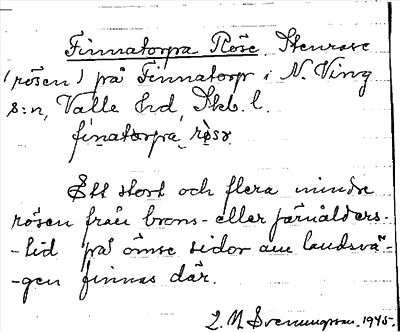 Finnatorpa Röse. Stenrose
(rösen) på Finnatorp i N. Ving
s:n, Valle hd, Skb. l.
finatorpa, röso
Ett stort och flera mindre
rösen från brons- eller järnålders-
-tid på ömse sidor om landsvä-
-gen finnas där.
L. M. Svenungsson. 1945.